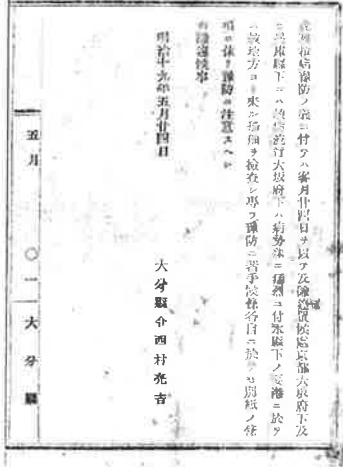 虎列拉病豫防ノ義ニ付テハ客月廿四日ヲ以テ及諭達置候處京都大坂府下及
ヒ兵庫縣下ニハ 流行大坂府下ハ病勢 猖獗ニ付本縣下ノ要港ニ於テ
ハ該地方ヨリ來ル船舶ヲ檢査シ專ラ豫防ニ着手候條各自ニ於テモ別紙ノ
項ニ依リ豫防ニ注意スヘシ
右諭達候事
明治十九年五月廿四日
大分縣令西村亮吉
五月 〇一 大分縣